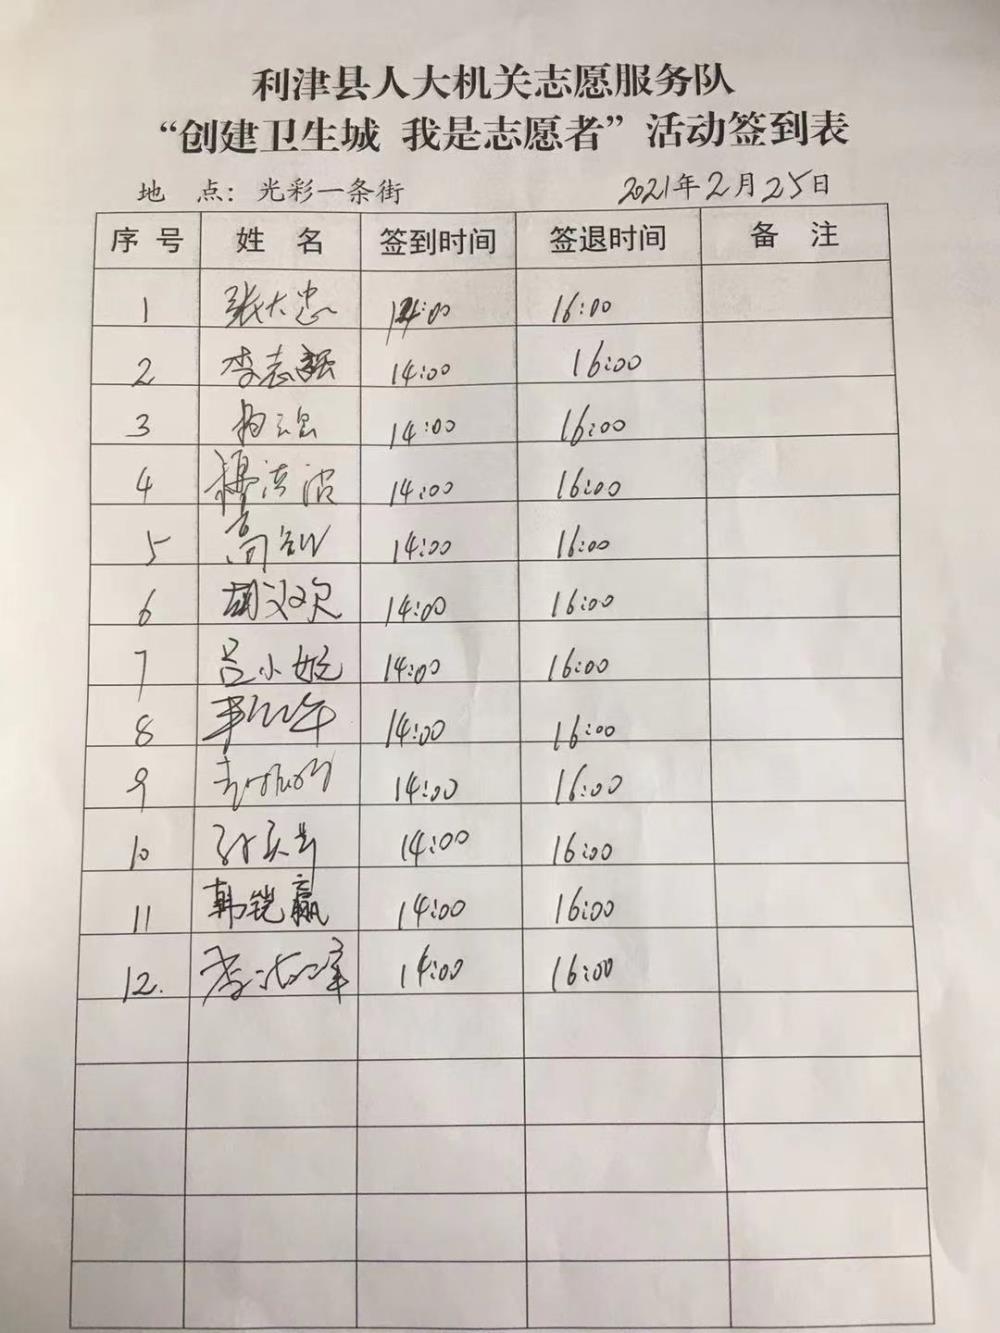 利津县人大机关志愿服务队
“创建卫生城 我是志愿者”活动签到表
地 点：光彩一条街 2021年2月25日
序号 姓名 签到时间 签退时间 备注
1 张大忠 14:00 16:00
2 李志强 14:00 16:00
3 14:00 16:00
4 14:00 16:00
5 高 14:00 16:00
6 胡汉欢 14:00 16:00
7 吕小妮 14:00 16:00
8 14:00 16:00
9 14:00 16:00
10 14:00 16:00
11 韩铠赢 14:00 16:00
12. 李 14:00 16:00